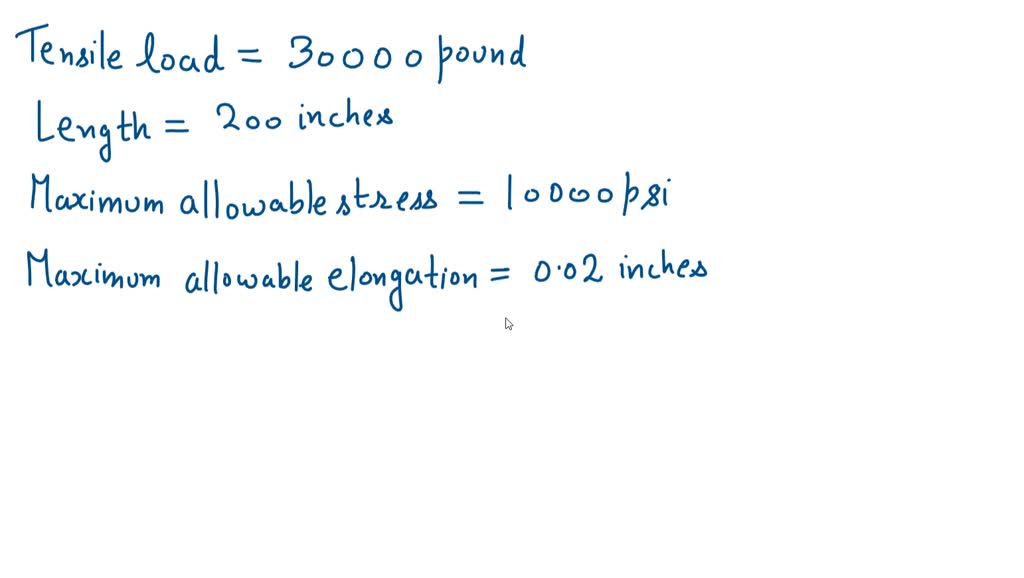 Tensile load = 30000 pound
Length = 200 inches
Maximum allowable stress = 10000 psi
Maximum allowable elongation = 0.02 inches